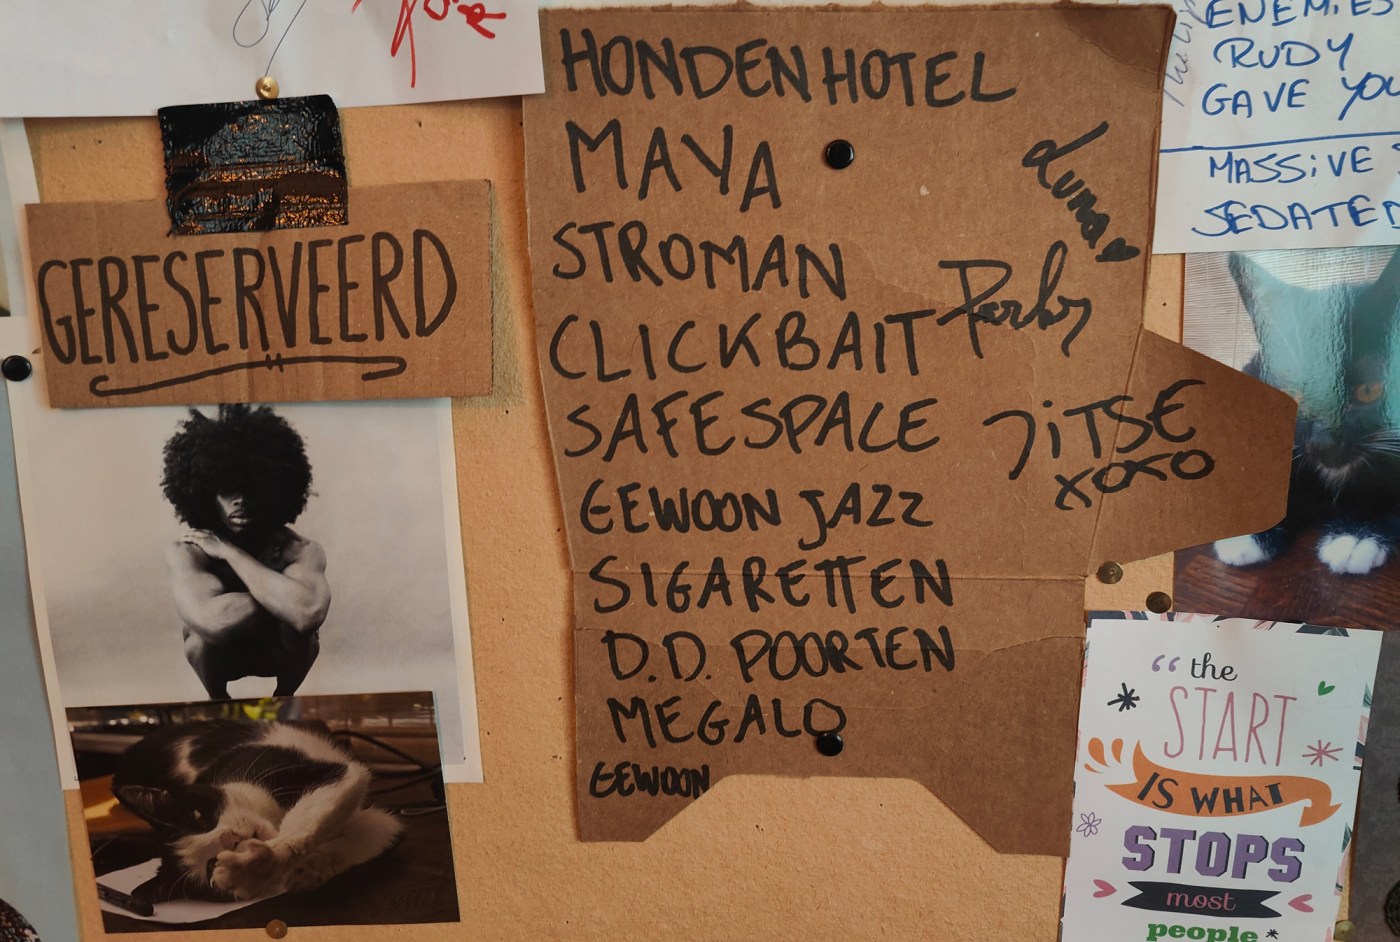 GERESERVEERD
HONDENHOTEL
MAYA
STROMAN
CLICKBAIT
SAFESPACE
GEWOON JAZZ
SIGARETTEN
D.D. POORTEN
MEGALO
GEWOON
Luna
JiTSE
xoxo
ENEMiES
RUDY
GAVE YOU
MASSiVE
SEDATED
“the
START
IS WHAT
STOPS
most
people